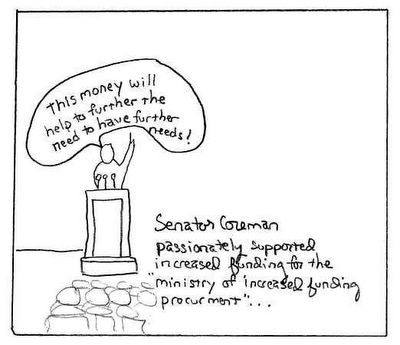 This money will
help to further the
need to have further
needs!
Senator Coreman
passionately supported
increased funding for the
"ministry of increased funding
procurment"...